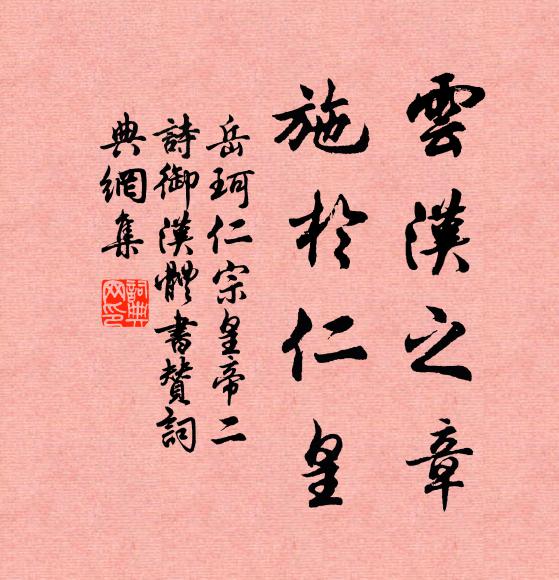 雲漢之章
施於仁皇
岳珂仁宗皇帝二
詩御漢體書贊詞
典網集
詞典網印